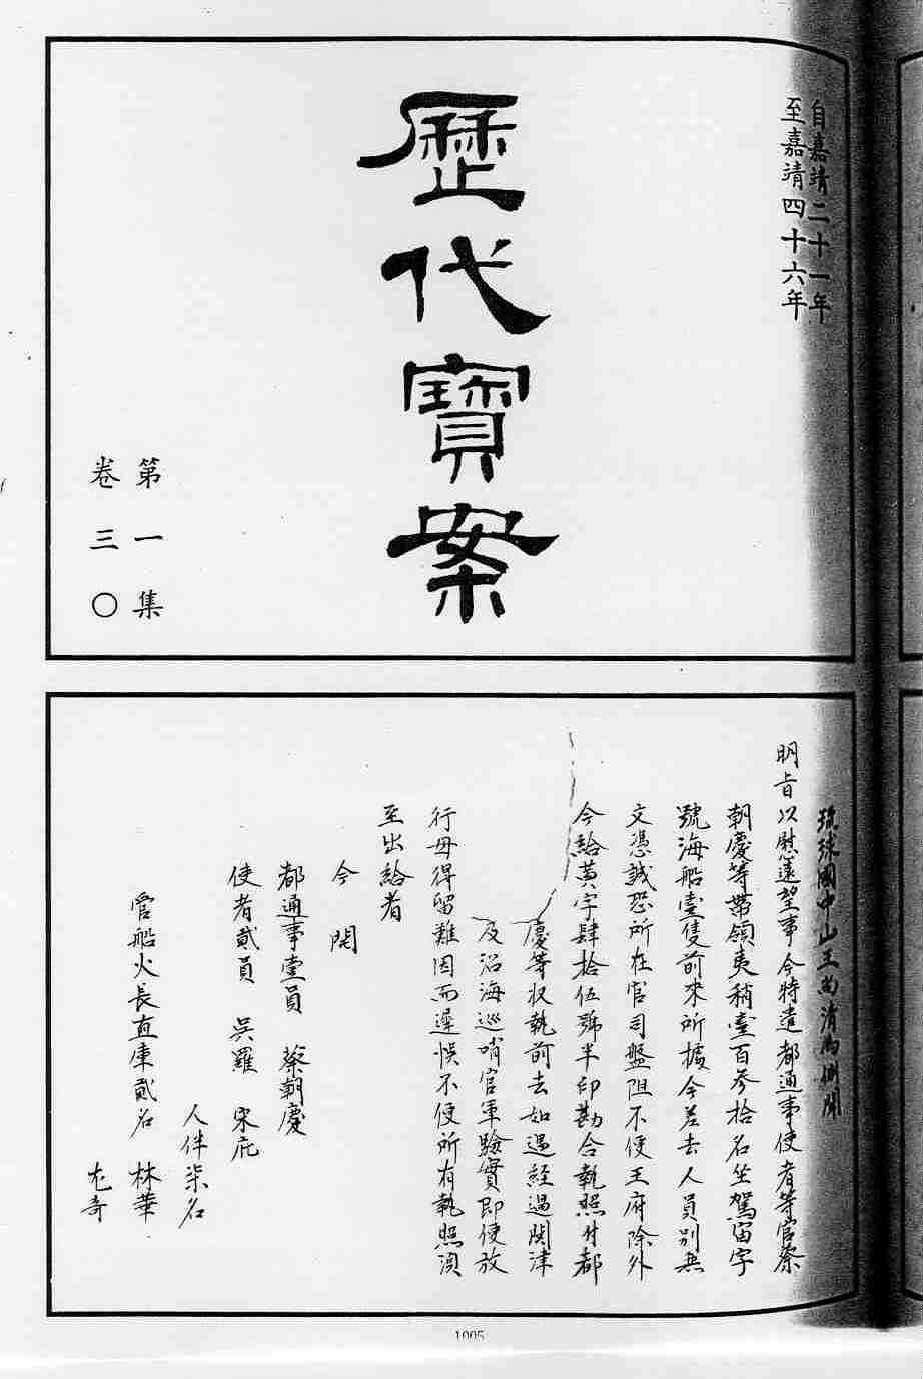 自嘉靖二十一年
至嘉靖四十六年
歷代寶案
第一集
卷三〇
琉球國中山王尚清為開
明旨以慰遠望事今特遣都通事使者等官蔡
朝慶等帶領夷稍壹百參拾名坐駕宙字
號海船壹隻前來所據今差去人員別無
文憑誠恐所在官司盤阻不便王府除外
今給黃字肆拾伍號半印勘合執照付都
慶等收執前去如遇經過関津
及沿海巡哨官軍驗實即便放
行毋得留難因而遲悞不便所有執照須
至出給者
今開
都通事壹員 蔡朝慶
使者貳員 吳羅 宋庇
人伴柒名
管船火長直庫貳名 林華
尤奇
1005